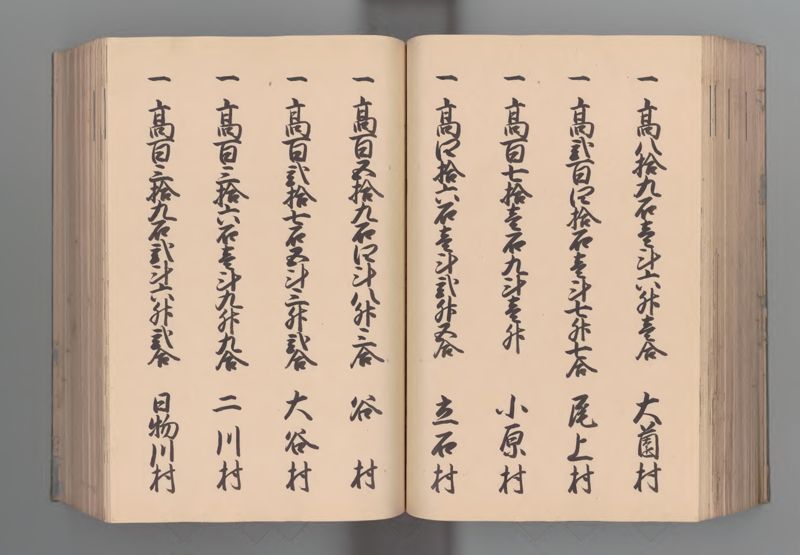 一 高八拾九石壱斗六升壱合 大薗村
一 高弐百四拾石壱斗七升七合 尾上村
一 高百七拾壱石九斗壱升 小原村
一 高四拾六石壱斗弐升五合 立石村
一 高百五拾九石四斗八升三合 谷村
一 高百弐拾七石五斗三升弐合 大谷村
一 高百三拾六石壱斗九升九合 二川村
一 高百三拾九石弐斗六升弐合 日物川村